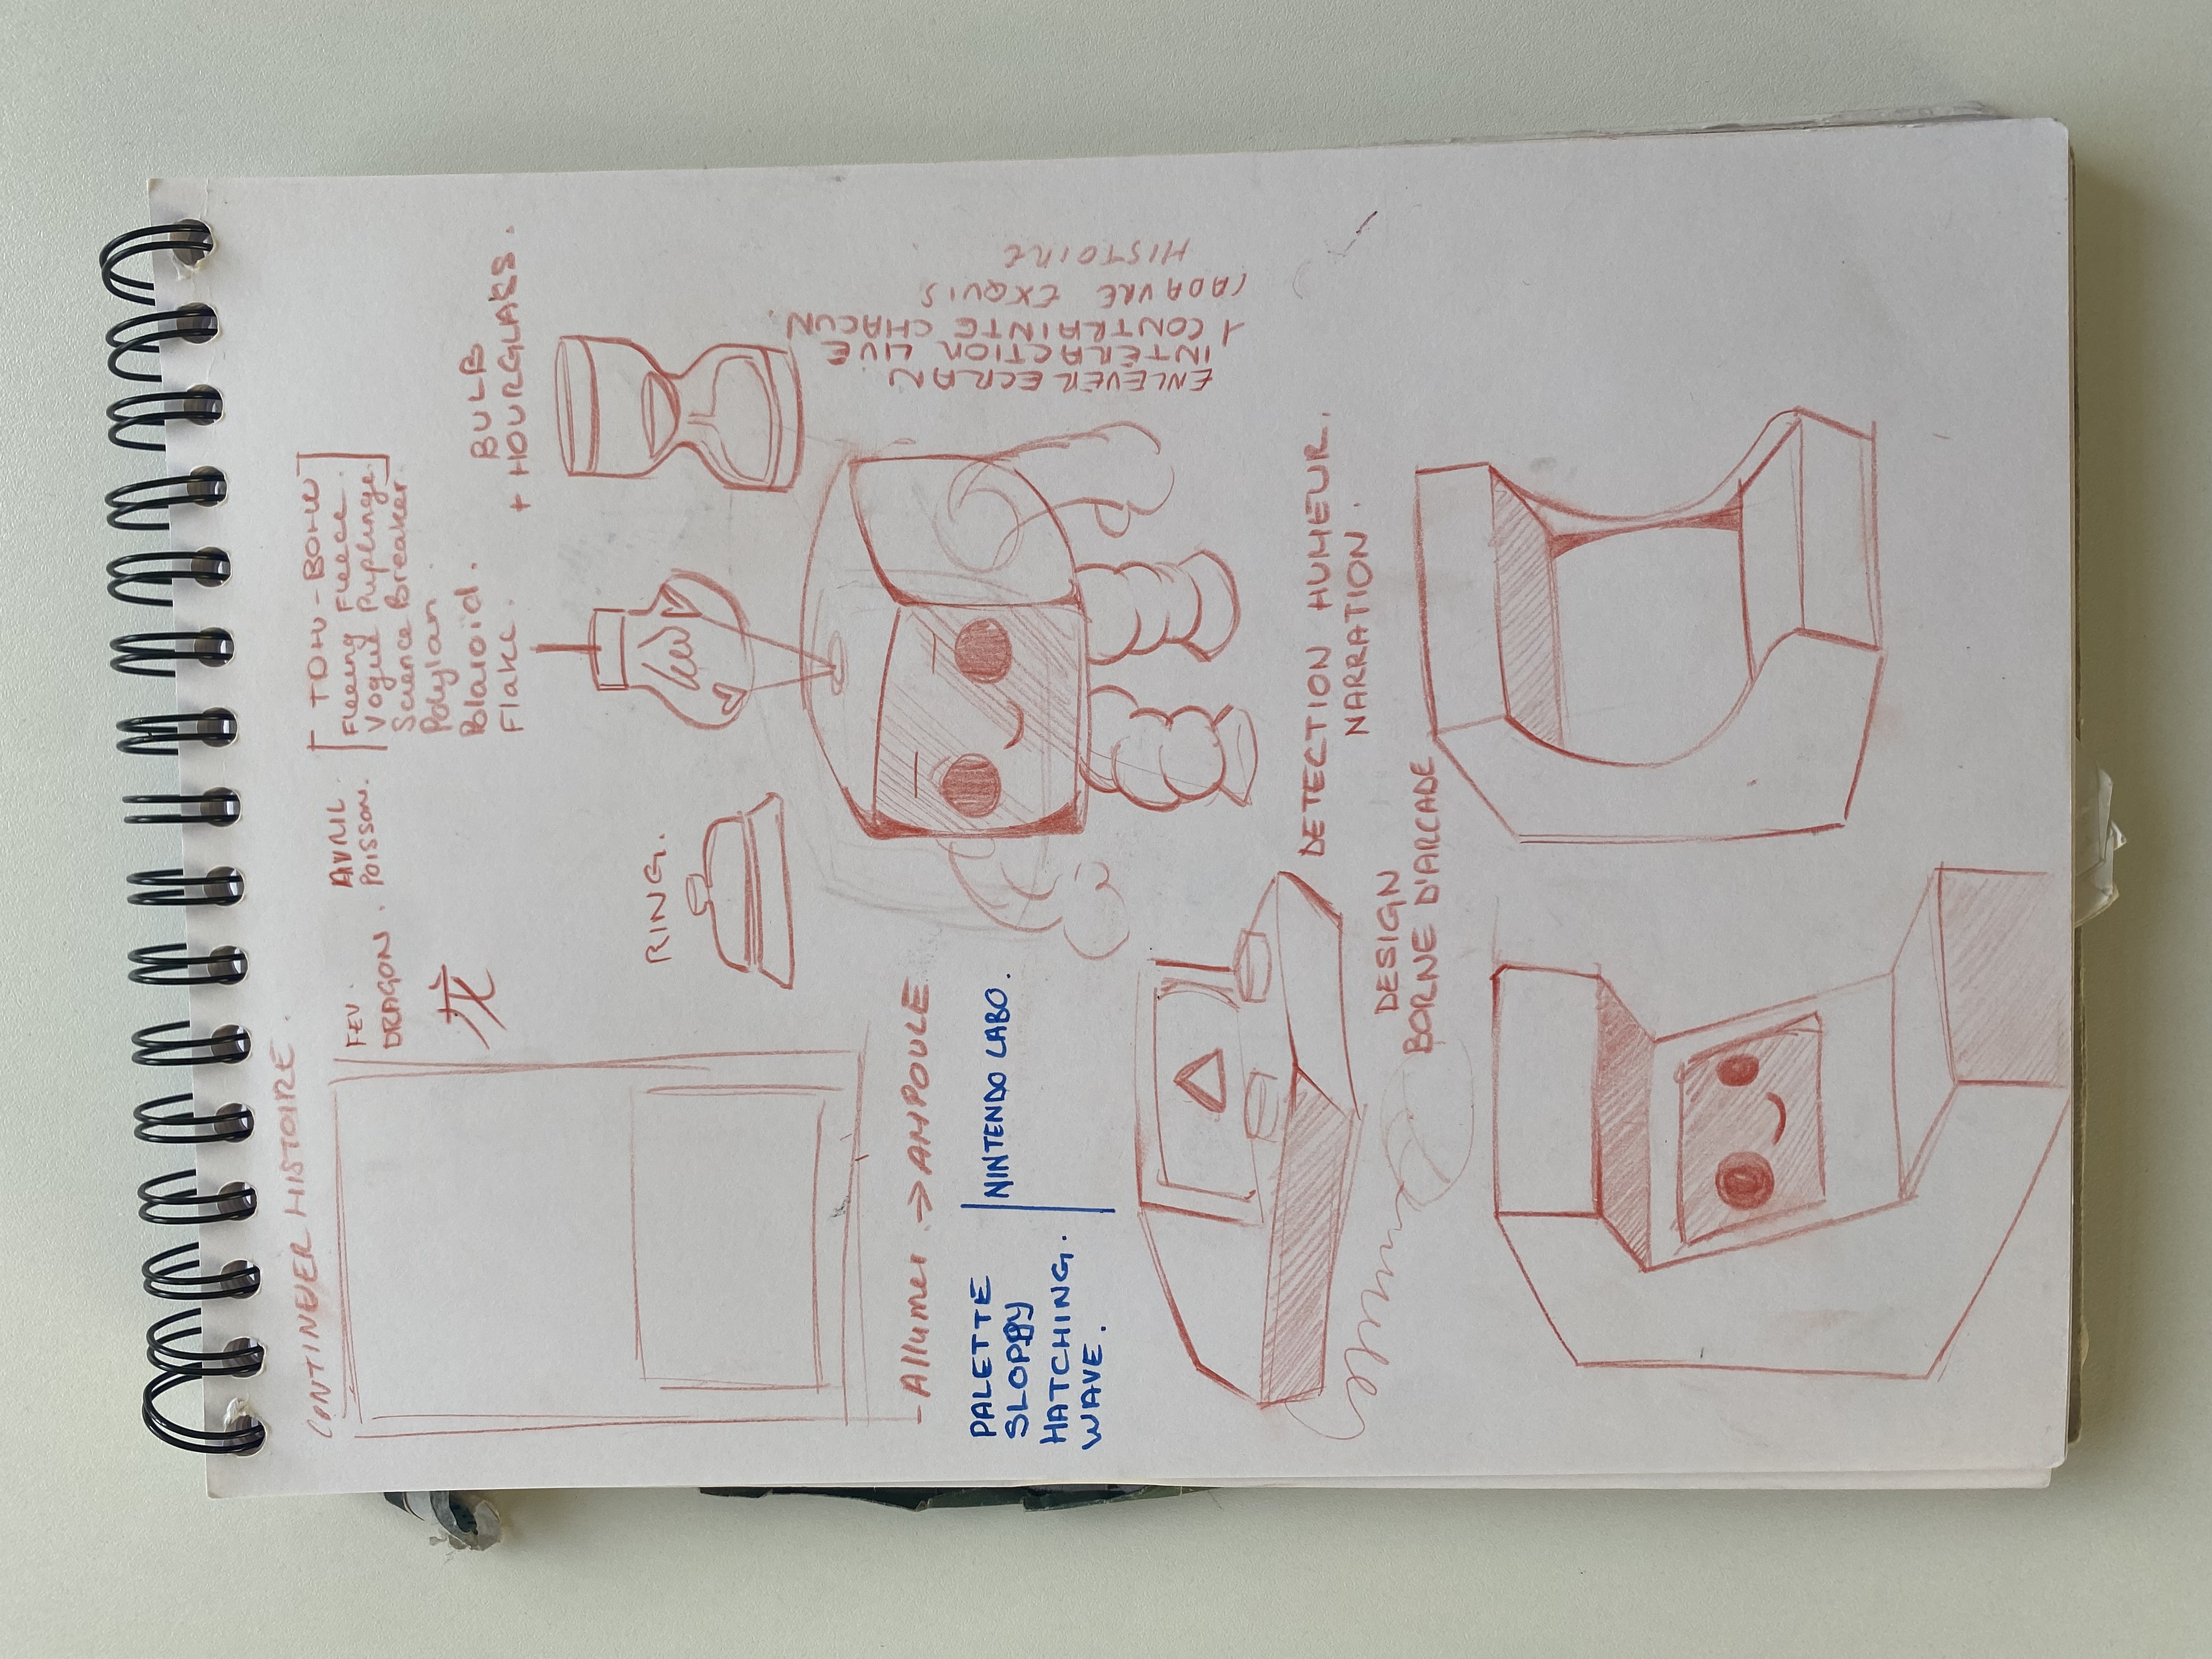 CONTINUER HISTOIRE.
FEV.
DRAGON.
龙
AVRIL
POISSON.
TOHU-BOHU
Fleeing Fleece.
Vogue Puplinge.
Science Breaker.
Polylan.
Polaroid.
Flake.
BULB
+ HOURGLASS.
RING.
- Allumer → AMPOULE
PALETTE
SLOPPY
HATCHING.
WAVE.
NINTENDO LABO.
ENLEVER ECRAN.
INTERACTION LIVE
1 CONTRAINTE CHACUN.
CADAVRE EXQUIS
HISTOIRE
DETECTION HUMEUR.
NARRATION.
DESIGN
BORNE D'ARCADE